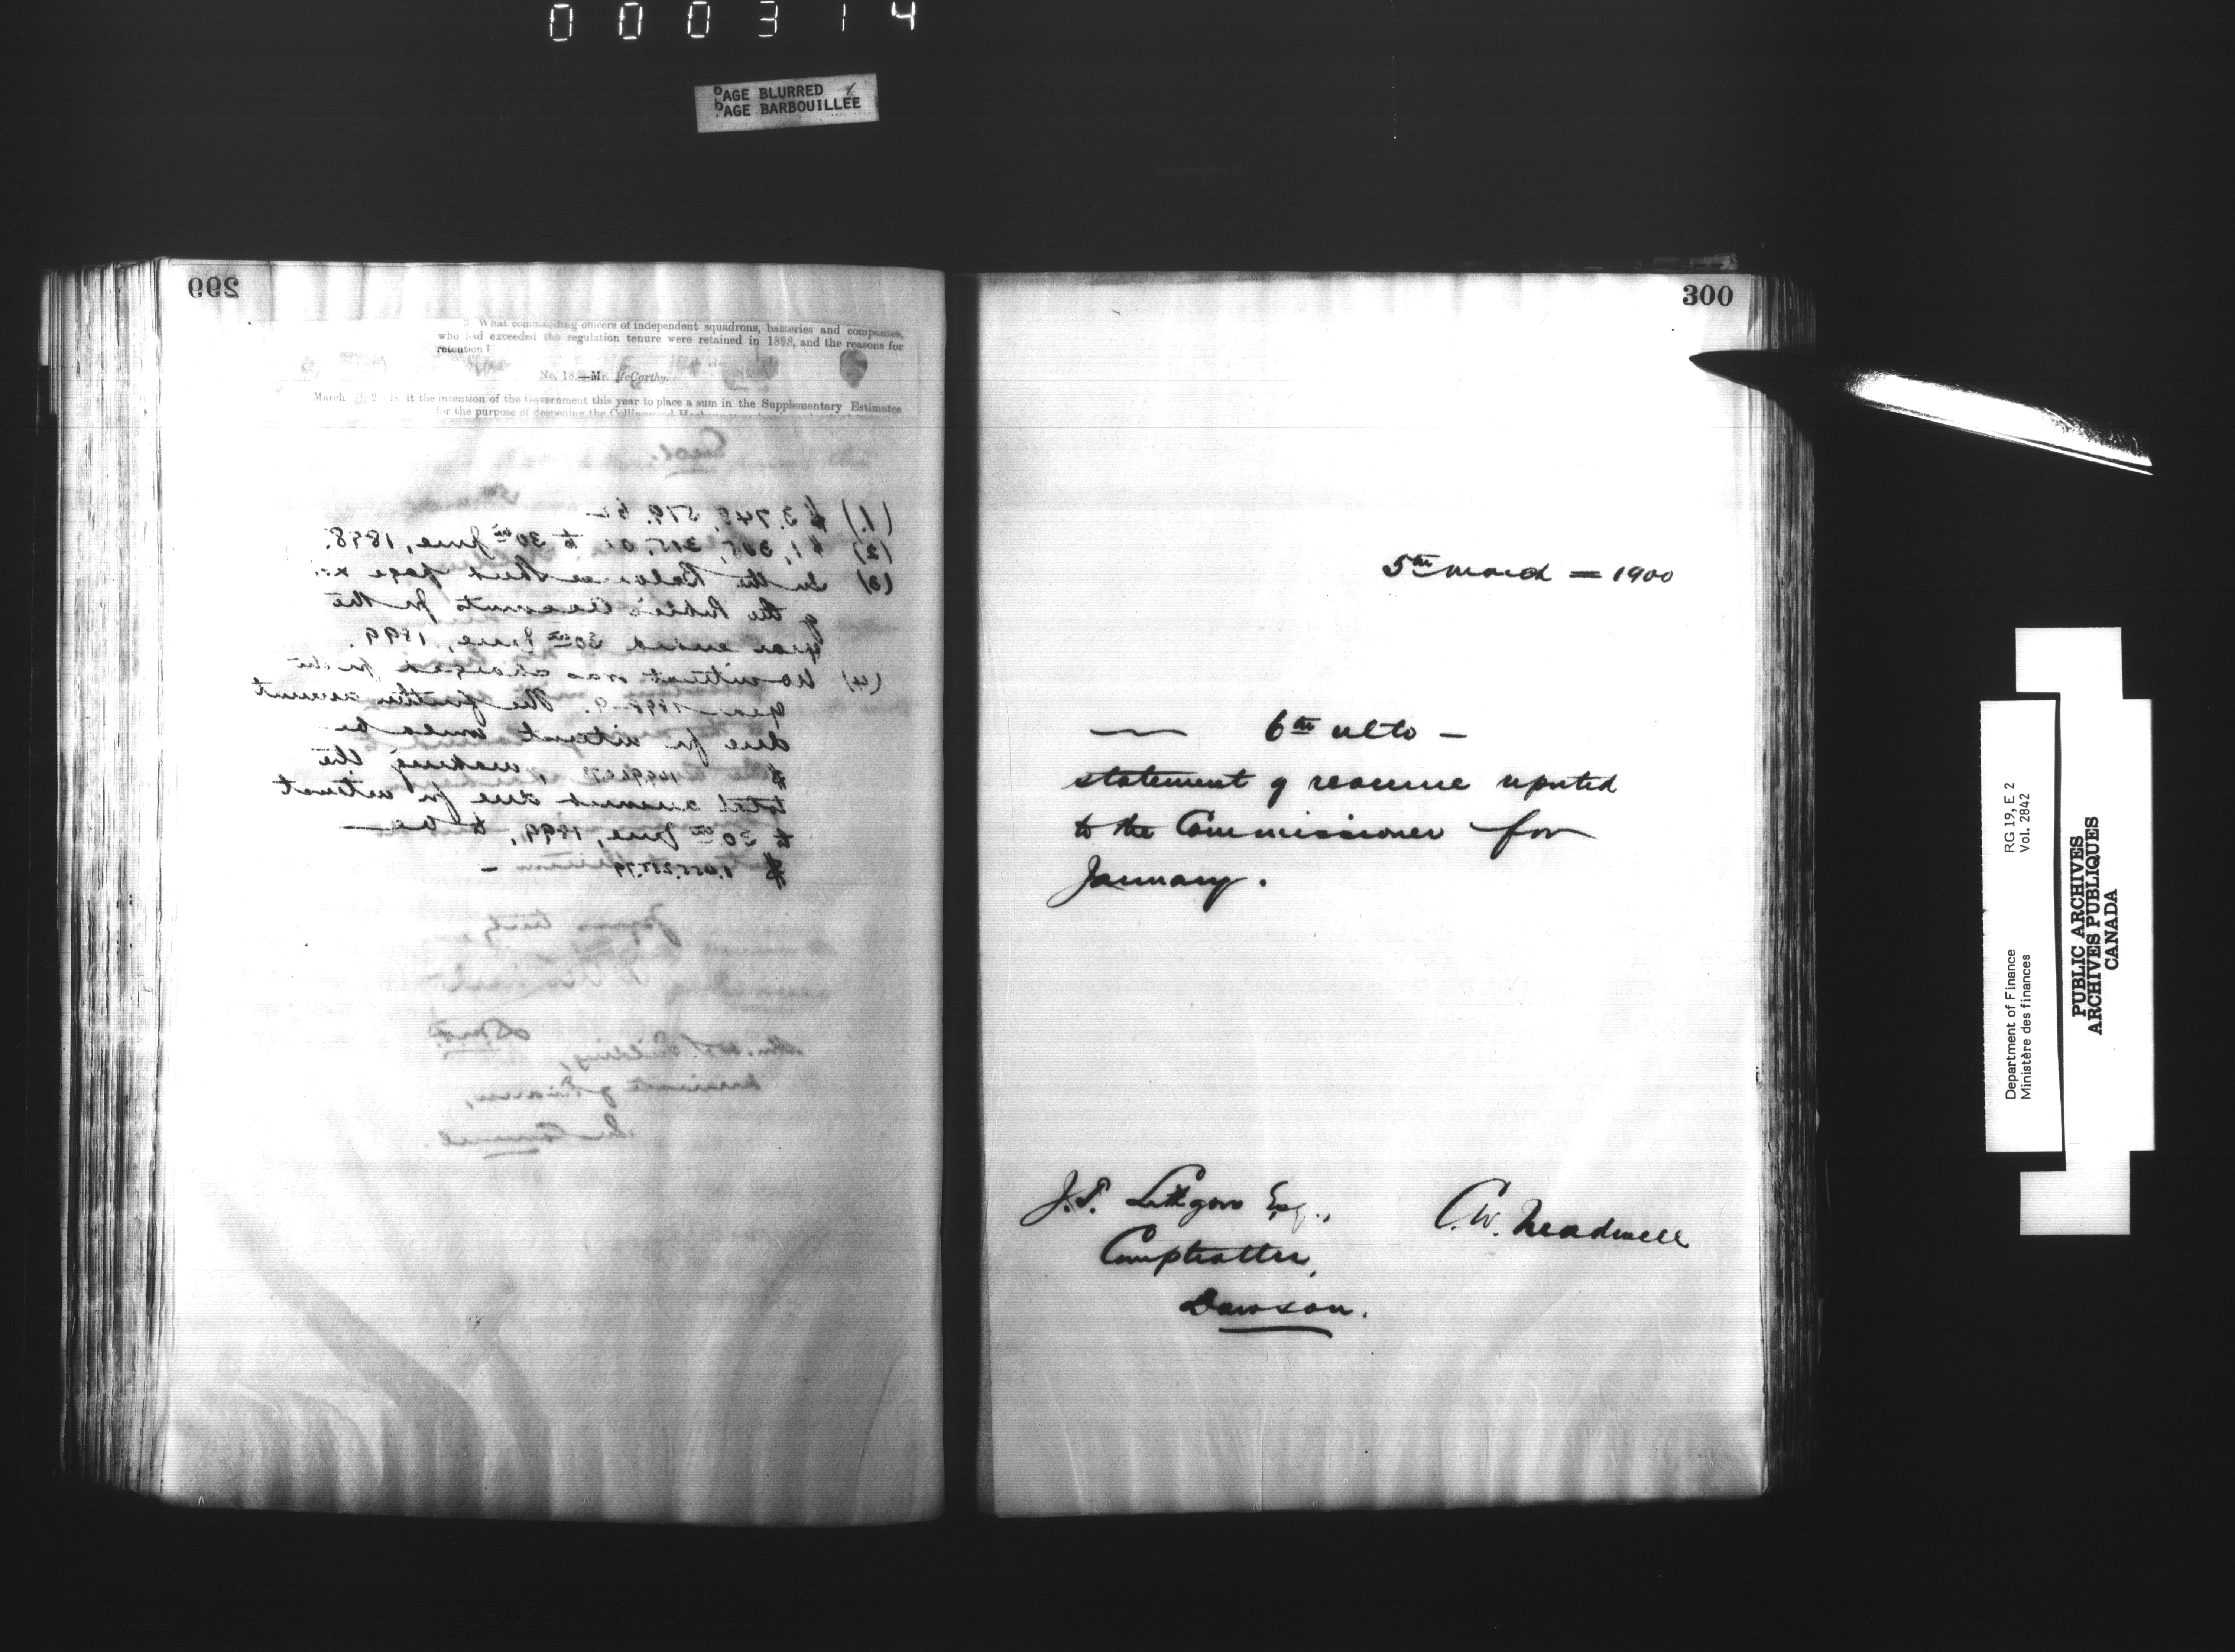 000314
PAGE BLURRED
PAGE BARBOUILLÉE
299
What commanding officers of independent squadrons, batteries and companies,
who had exceeded the regulation tenure were retained in 1898, and the reasons for
retention?
No. 18.—Mr. McCarthy.
March 2—Is it the intention of the Government this year to place a sum in the Supplementary Estimates
for the purpose of deepening the Collingwood
(1.) $ 3,748,579.
(2) $1, 315.01 to 30th June, 1898.
(3) In the Balance Sheet page
of the Public Accounts for the
year ended 30th June, 1899.
(4) No interest was charged for the
year 1898-9. The further amount
due for interest would be
making the
total amount due for interest
to 30th June, 1899, to be
$
Yours truly,
Hon. W.S. Fielding,
Minister of Finance,
300
5th March = 1900
— 6th ulto —
statement of revenue reported
to the Commissioner for
January.
J.T. Lithgow Esq.,
Comptroller,
Dawson.
C.W. Treadwell
Department of Finance RG 19, E 2
Ministère des finances Vol. 2842
PUBLIC ARCHIVES
ARCHIVES PUBLIQUES
CANADA